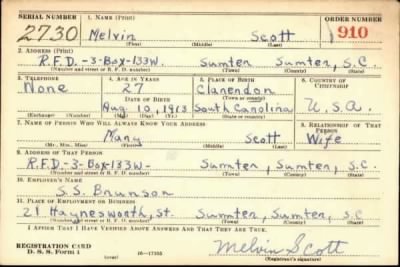 SERIAL NUMBER 1. NAME (Print) ORDER NUMBER
2730 Melvin Scott 910
(First) (Middle) (Last)
2. ADDRESS (Print)
R.F.D.-3-Box-133W. Sumter Sumter, S.C.
(Number and street or R. F. D. number) (Town) (County) (State)
3. TELEPHONE 4. AGE IN YEARS 5. PLACE OF BIRTH 6. COUNTRY OF CITIZENSHIP
None 27 Clarendon
DATE OF BIRTH (Town or county)
Aug. 10, 1913 South Carolina U.S.A.
(Exchange) (Number) (Mo.) (Day) (Yr.) (State or country)
7. NAME OF PERSON WHO WILL ALWAYS KNOW YOUR ADDRESS 8. RELATIONSHIP OF THAT PERSON
Mary Scott Wife
(Mr., Mrs., Miss) (First) (Middle) (Last)
9. ADDRESS OF THAT PERSON
R.F.D.-3-Box-133W- Sumter, Sumter, S.C.
(Number and street or R. F. D. number) (Town) (County) (State)
10. EMPLOYER'S NAME
S.S. Brunson
11. PLACE OF EMPLOYMENT OR BUSINESS
21 Haynesworth, St. Sumter, Sumter, S.C.
(Number and street or R. F. D. number) (Town) (County) (State)
I AFFIRM THAT I HAVE VERIFIED ABOVE ANSWERS AND THAT THEY ARE TRUE.
REGISTRATION CARD Melvin Scott
D. S. S. Form 1 (over) 16-17105 (Registrant's signature)